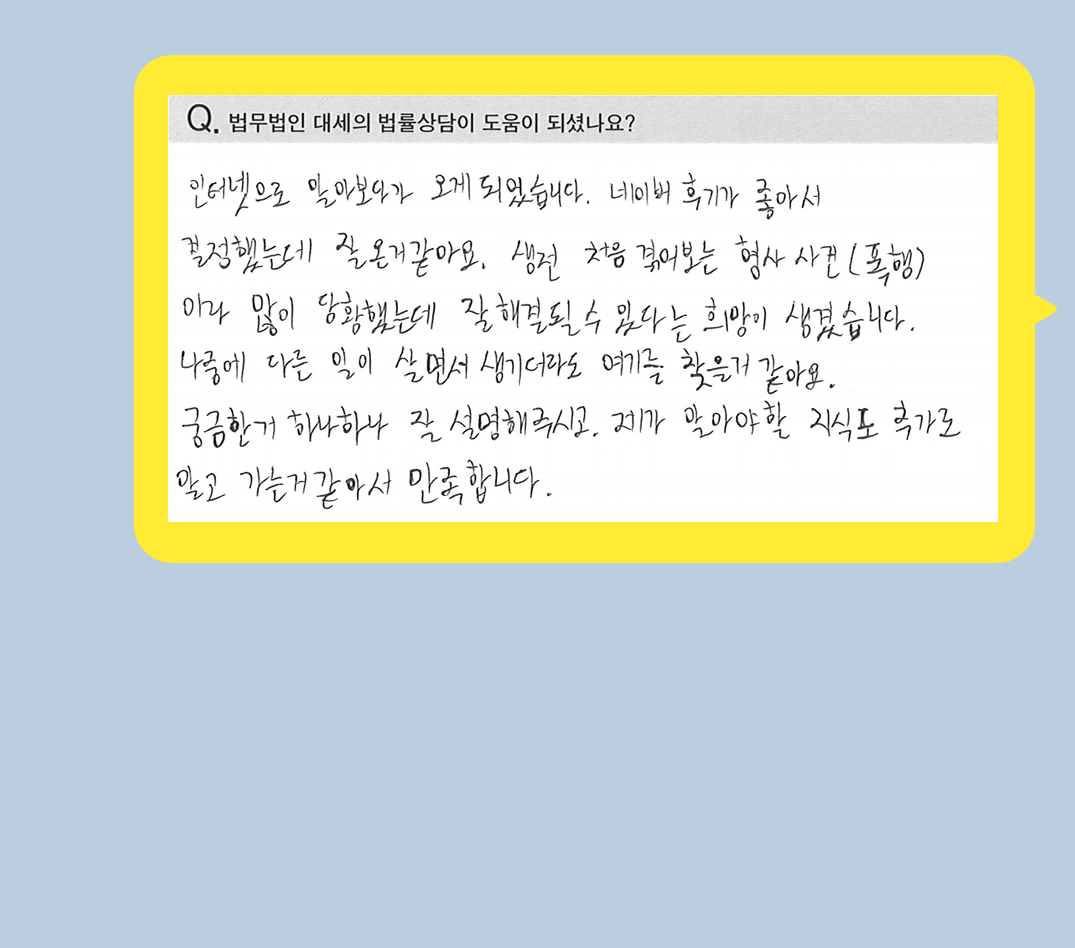 Q. 법무법인 대세의 법률상담이 도움이 되셨나요?
인터넷으로 알아보다가 오게 되었습니다. 네이버 후기가 좋아서
결정했는데 잘 온거같아요. 생전 처음 겪어보는 형사 사건(폭행)
이라 많이 당황했는데 잘 해결될 수 있다는 희망이 생겼습니다.
나중에 다른 일이 살면서 생기더라도 여기를 찾을거 같아요.
궁금한거 하나하나 잘 설명해주시고. 제가 알아야할 지식도 추가로
알고 가는거같아서 만족합니다.